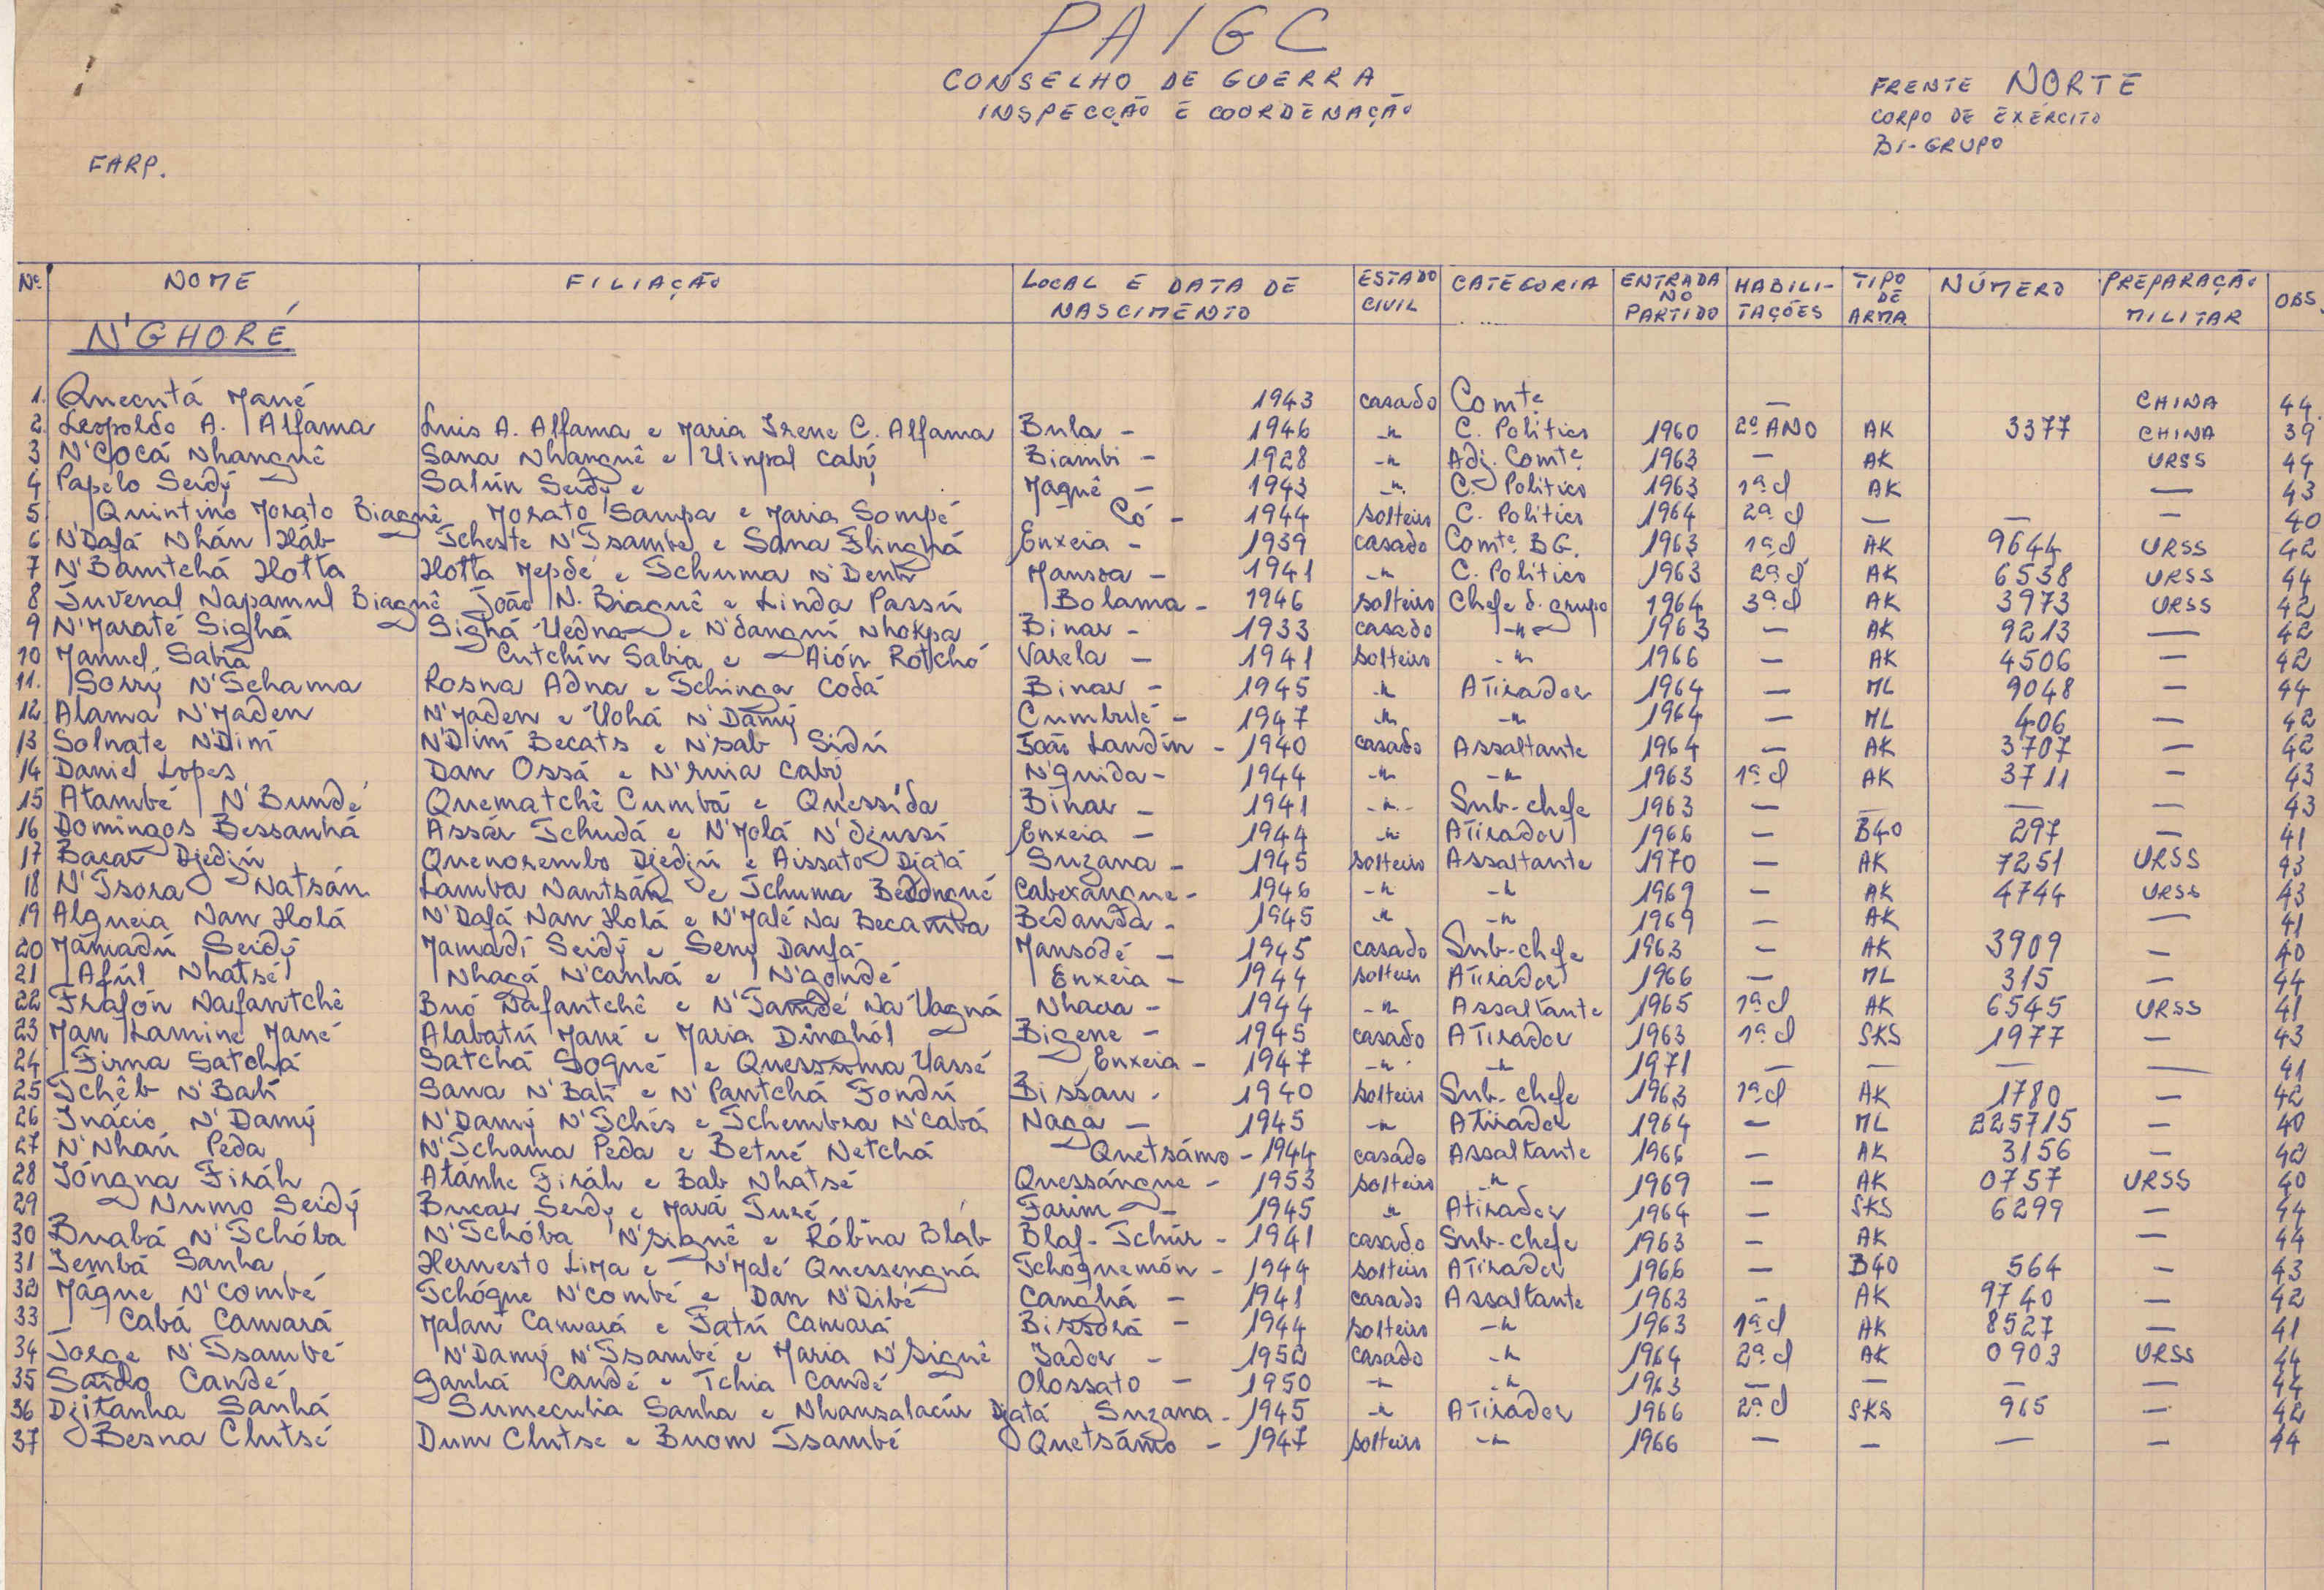 PAIGC
CONSELHO DE GUERRA
INSPECÇÃO E COORDENAÇÃO
FRENTE NORTE
CORPO DE EXÉRCITO
BI-GRUPO
FARP.
Nº NOME FILIAÇÃO LOCAL E DATA DE NASCIMENTO ESTADO CIVIL CATEGORIA ENTRADA NO PARTIDO HABILI-TAÇÕES TIPO DE ARMA NÚMERO PREPARAÇÃO MILITAR OBS.
N'GHORÉ
1. Quecutá Mané 1943 casado Comte — CHINA 44
2. Leopoldo A. Alfama Luis A. Alfama e Maria Irene C. Alfama Bula - 1946 -"- C. Politico 1960 2º ANO AK 3377 CHINA 39
3 N'Cocá Nhangnê Sana Nhangnê e Uinpal Cabi Biambi - 1928 -"- Adj. Comte 1963 — AK URSS 44
4 Papelo Seidÿ Salún Seidÿ e Maquê - 1943 -"- C. Politico 1963 1ª cl AK — 43
5 Quintino Morato Biagnê Morato Sampa e Maria Sompé Có - 1944 solteiro C. Politico 1964 2ª cl — — — 40
6 N'Dafá Nhán Háb Tcheste N'Tsambe e Sana Flinghá Enxeia - 1939 casado Comte BG. 1963 1ª cl AK 9644 URSS 42
7 N'Bamtchá Hotta Hotta Mepdé e Tchuma N'Dentr Mansoa - 1941 -"- C. Politico 1963 2ª cl AK 6538 URSS 44
8 Juvenal Napamul Biagnê João N. Biagnê e Linda Passú Bolama - 1946 solteiro Chefe d. grupo 1964 3ª cl AK 3973 URSS 42
9 N'Maraté Sighá Sighá Uedna e N'dangní Nhokpa Binar - 1933 casado -"- 1963 — AK 9213 — 42
10 Manuel Sabia Cutchin Sabia e Aión Rotchó Varela - 1941 solteiro -"- 1966 — AK 4506 — 42
11. Sorrÿ N'Tchama Rosna Adna e Tchinga Codá Binar - 1945 -"- ATirador 1964 — ML 9048 — 44
12 Alama N'Maden N'Maden e Uohá N'Damÿ Cumbulé - 1947 -"- -"- 1964 — ML 406 — 42
13 Solnate N'Diní N'Diní Becats e N'sab Sidú João Landín - 1940 casado Assaltante 1964 — AK 3707 — 42
14 Daniel Lopes Dan Ossá e N'ruia Cabi N'Guida - 1944 -"- -"- 1963 1ª cl AK 3711 — 43
15 Atambé N'Bundé Quematchê Cumbá e Quessída Binar - 1941 -"- Sub-chefe 1963 — — — — 43
16 Domingos Bessanhá Assár Tchudá e N'Molá N'djussi Enxeia - 1944 -"- ATirador 1966 — B40 297 — 41
17 Bacar Djedjú Quenorembo Djedjú e Aissato Djatá Suzana - 1945 solteiro Assaltante 1970 — AK 7251 URSS 43
18 N'Tsora Natsán Lamba Nantsán e Tchuma Bedongné Cabexangue - 1946 -"- -"- 1969 — AK 4744 URSS 43
19 Algueia Nan Holá N'Dafá Nan Holá e N'Malé Na Becamba Bedanda - 1945 -"- -"- 1969 — AK — 41
20 Mamadú Seidÿ Mamadí Seidÿ e Senÿ Danfá Mansodé - 1945 casado Sub-chefe 1963 — AK 3909 — 40
21 Afúl Nhatsé Nhagá N'canhá e N'gotndé Enxeia - 1944 solteiro ATirador 1966 — ML 315 — 44
22 Frafón Nafantchê Buó Nafantchê e N'Tamdé Na Uagná Nhacra - 1944 -"- Assaltante 1965 1ª cl AK 6545 URSS 41
23 Man Lamine Mané Alabatú Mané e Maria Dinghól Bigene - 1945 casado ATirador 1963 1ª cl SKS 1977 — 43
24 Firna Satchá Satchá Sogné e Quessuma Uassé Enxeia - 1947 -"- -"- 1971 — — — — 41
25 Tchêb N'Bati Sana N'Bati e N'Pantchá Fondú Bissau - 1940 solteiro Sub-chefe 1963 1ª cl AK 1780 — 42
26 Inácio N'Damÿ N'Damÿ N'Tchés e Tchembra N'Cabá Naga - 1945 -"- Atirador 1964 — ML 225715 — 40
27 N'Nhan Peda N'Tchama Peda e Betné Netchá Quetsámo - 1944 casado Assaltante 1966 — AK 3156 — 42
28 Tóngna Firáh Atánhe Firáh e Bab Nhatsé Quessángue - 1953 solteiro -"- 1969 — AK 0757 URSS 40
29 Numo Seidÿ Bucar Seidÿ e Mará Turé Farim - 1945 -"- Atirador 1964 — SKS 6299 — 44
30 Buabá N'Tchóba N'Tchóba N'signê e Róbna Bláb Blaf-Tchúr - 1941 casado Sub-chefe 1963 — AK — 44
31 Sembá Sanha Hernesto Lima e N'Malé Quessengná Tchóquemón - 1944 solteiro ATirador 1966 — B40 564 — 43
32 Mágne N'combé Tchógne N'combé e Dan N'Dibé Canghá - 1941 casado Assaltante 1963 - AK 9740 — 42
33 Cabá Camará Malan Camará e Fatú Camará Bissorá - 1944 solteiro -"- 1963 1ª cl AK 8527 — 41
34 Jorge N'Tsambé N'Damÿ N'Tsambé e Maria N'Signê Jador - 1952 casado -"- 1964 2ª cl AK 0903 URSS 44
35 Saído Candé Ganhá Candé e Tchia Candé Olossato - 1950 -"- -"- 1963 — — — — 44
36 Djitánha Sanhá Sumeculia Sanha e Nhansalacúr Djatá Suzana - 1945 -"- ATirador 1966 2ª cl SKS 965 — 42
37 Besna Clutsé Dum Clutse e Buom Tsambé Quetsámo - 1947 solteiro -"- 1966 — — — — 44